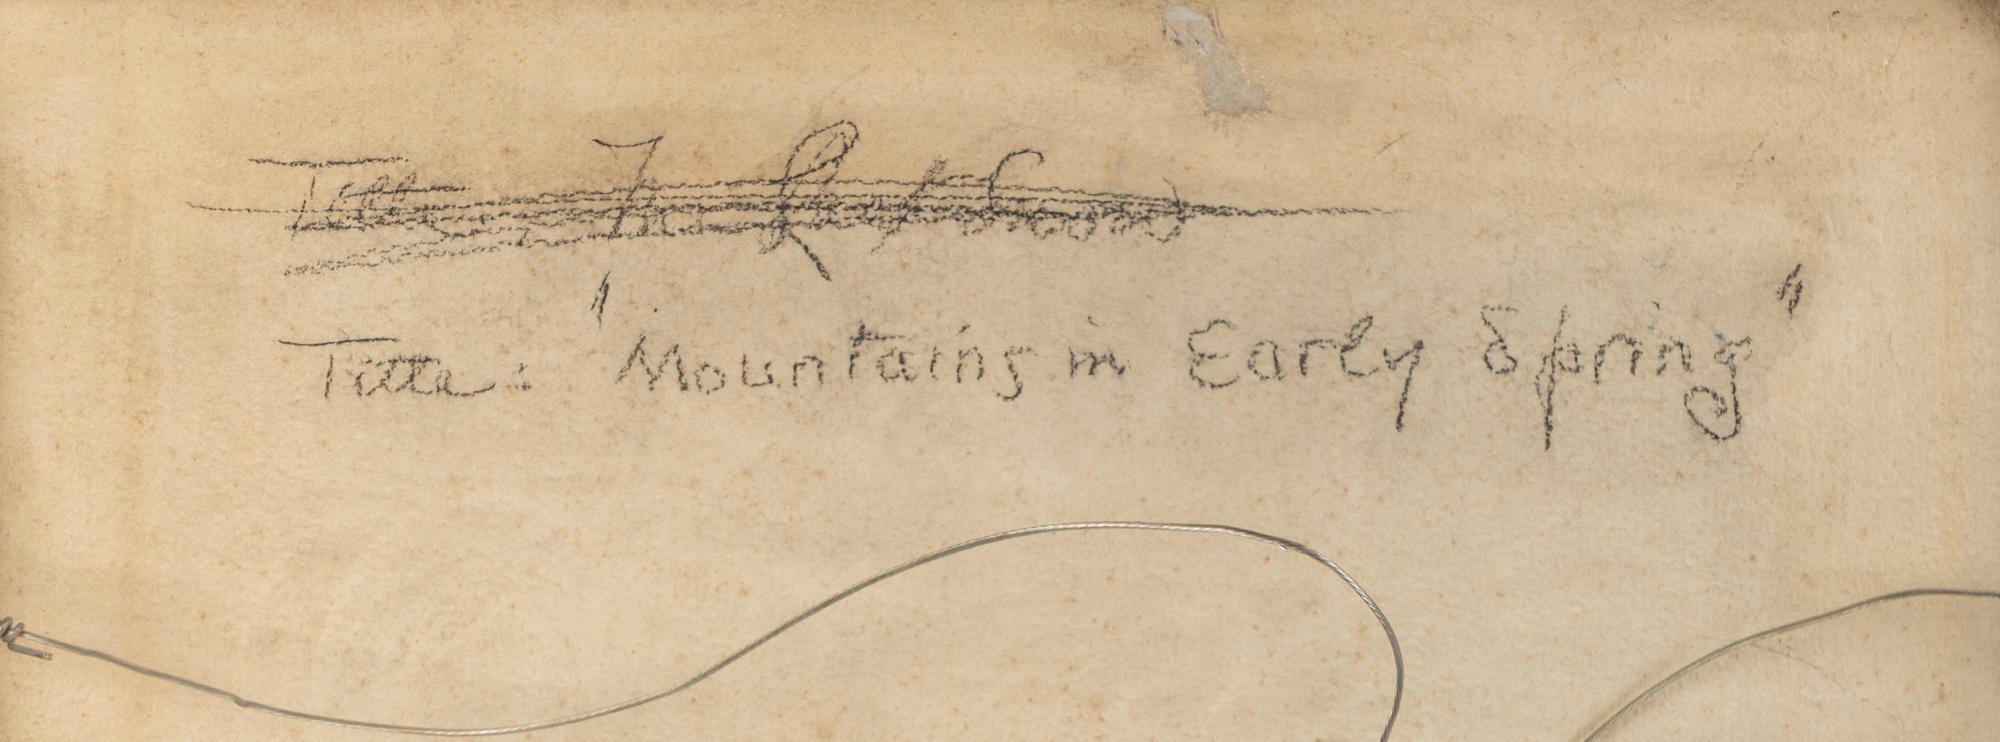 Title
Title: "Mountains in Early Spring"